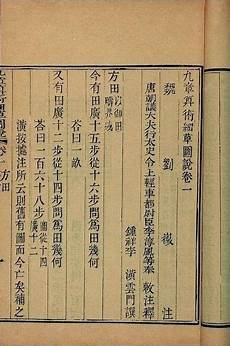 九章筭術細草圖說卷一
魏 劉 徽 注
唐朝議大夫行太史令上輕車都尉臣李淳風等奉敕注釋
鍾祥李 潢雲門譔
方田以御田疇界域
今有田廣十五步從十六步問爲田幾何
荅曰一畝
又有田廣十二步從十四步問爲田幾何
荅曰一百六十八步圖從十四廣十二
潢按據注所云則舊有圖而今亡矣補之
卷一 方田